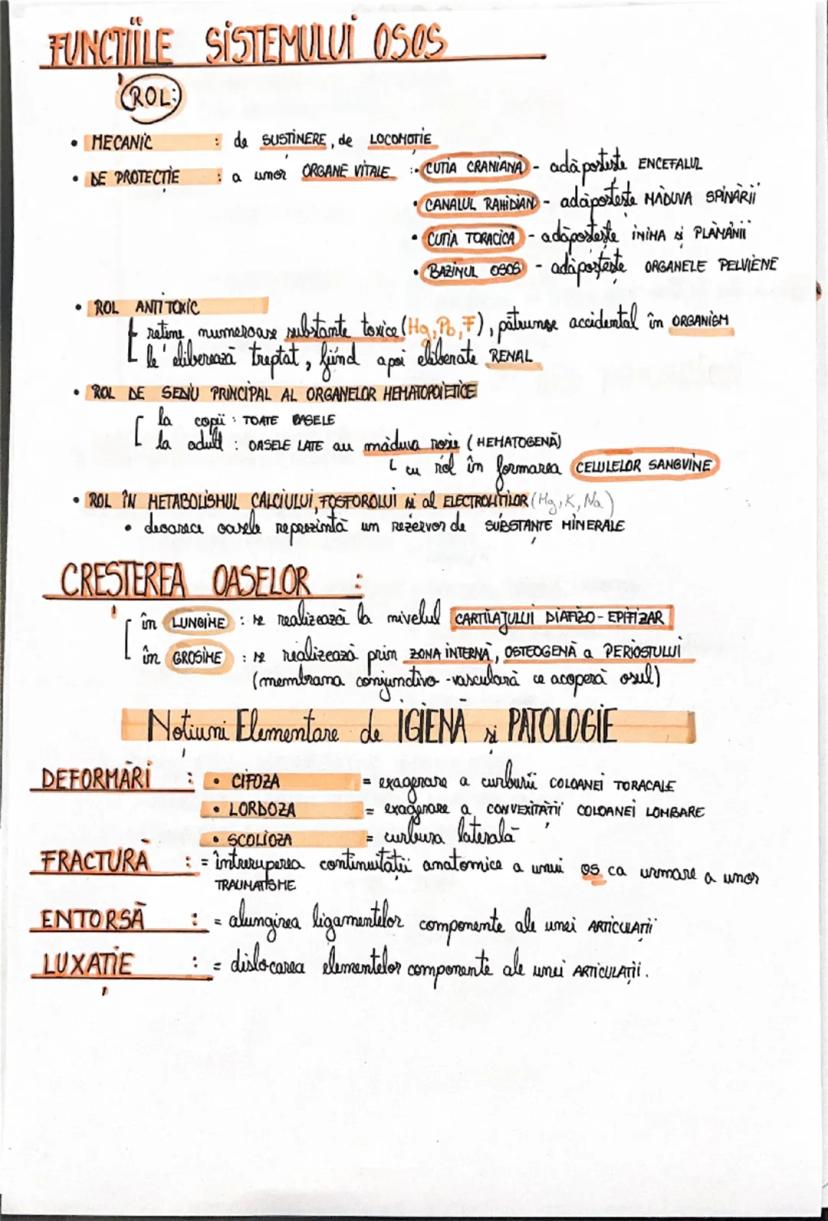 FUNCȚIILE SISTEMULUI OSOS
ROL:
• MECANIC : de SUSTINERE, de LOCOMOȚIE
• DE PROTECȚIE : a unor ORGANE VITALE :• CUTIA CRANIANA - adăpostește ENCEFALUL
• CANALUL RAHIDIAN - adăpostește MĂDUVA SPINĂRII
• CUTIA TORACICĂ - adăpostește INIMA și PLĂMÂNII
• BAZINUL OSOS - adăpostește ORGANELE PELVIENE
• ROL ANTITOXIC
rețin numeroase substanțe toxice (Hg, Pb, F), pătrunse accidental în ORGANISM
le eliberează treptat, fiind apoi eliberate RENAL
• ROL DE SEDIU PRINCIPAL AL ORGANELOR HEMATOPOIETICE
la copii : TOATE OASELE
la adult : OASELE LATE au măduva roșie (HEMATOGENĂ)
cu rol în formarea CELULELOR SANGVINE
• ROL ÎN METABOLISMUL CALCIULUI, FOSFORULUI și al ELECTROLIȚILOR (Mg, K, Na)
• deoarece oasele reprezintă un rezervor de SUBSTANȚE MINERALE
CREȘTEREA OASELOR :
în LUNGIME : se realizează la nivelul CARTILAJULUI DIAFIZO-EPIFIZAR
în GROSIME : se realizează prin ZONA INTERNĂ, OSTEOGENĂ a PERIOSTULUI
(membrana conjunctivo-vasculară ce acoperă osul)
Noțiuni Elementare de IGIENĂ și PATOLOGIE
DEFORMĂRI : • CIFOZA = exagerare a curburii COLOANEI TORACALE
• LORDOZA = exagerare a CONVEXITĂȚII COLOANEI LOMBARE
• SCOLIOZA = curbura laterală
FRACTURĂ : = întreruperea continuității anatomice a unui os ca urmare a unor
TRAUMATISME
ENTORSĂ : = alungirea ligamentelor componente ale unei ARTICULAȚII
LUXAȚIE : = dislocarea elementelor componente ale unei ARTICULAȚII.